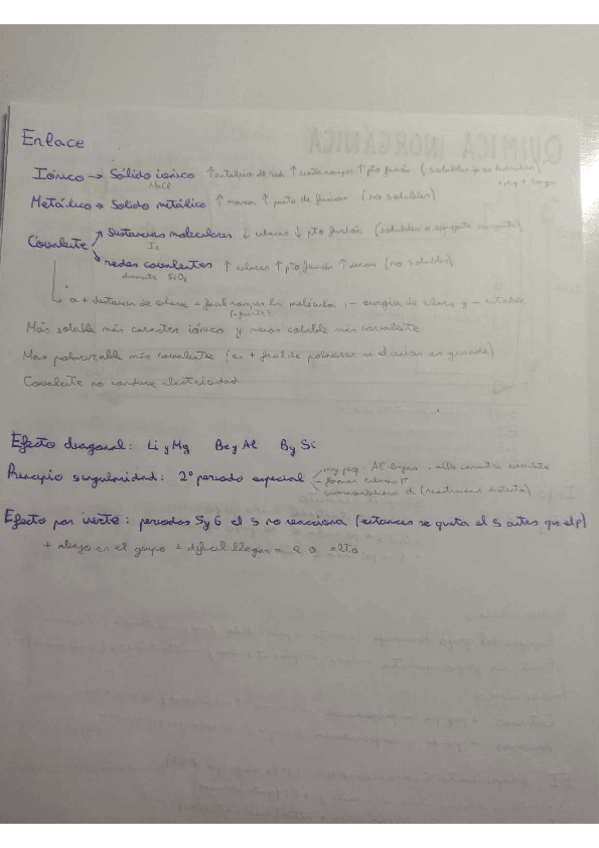 Enlace
Iónico → Sólido iónico ↑ entalpia de red ↑ ↑ pto fusión (solubles
NaCl
Metálico → Sólido metálico ↑ ↑ punto de fusión (no solubles)
Covalente
Sustancias moleculares ↓ enlaces ↓ pto fusión (solubles
I2
redes covalentes ↑ enlaces ↑ pto fusión ↑ (no soluble)
diamante SiO2
a + distancia de enlace + fácil romper la molécula, - energía de enlace y - estable
(-fuerte)
Más soluble más caracter iónico y menos soluble más covalente
Mas polarizable más covalente (es + fácil de polarizar si el anion es grande)
Covalente no conduce electricidad
Efecto diagonal: Li y Mg Be y Al B y Si
Principio singularidad: 2º periodo especial
muy peq. AE
formar enlaces π
d (reactividad distinta)
Efecto par inerte: periodos 5 y 6 el s no reacciona (entonces se quita el s antes que el p)
+ abajo en el grupo + dificil llegar a e.o. alto